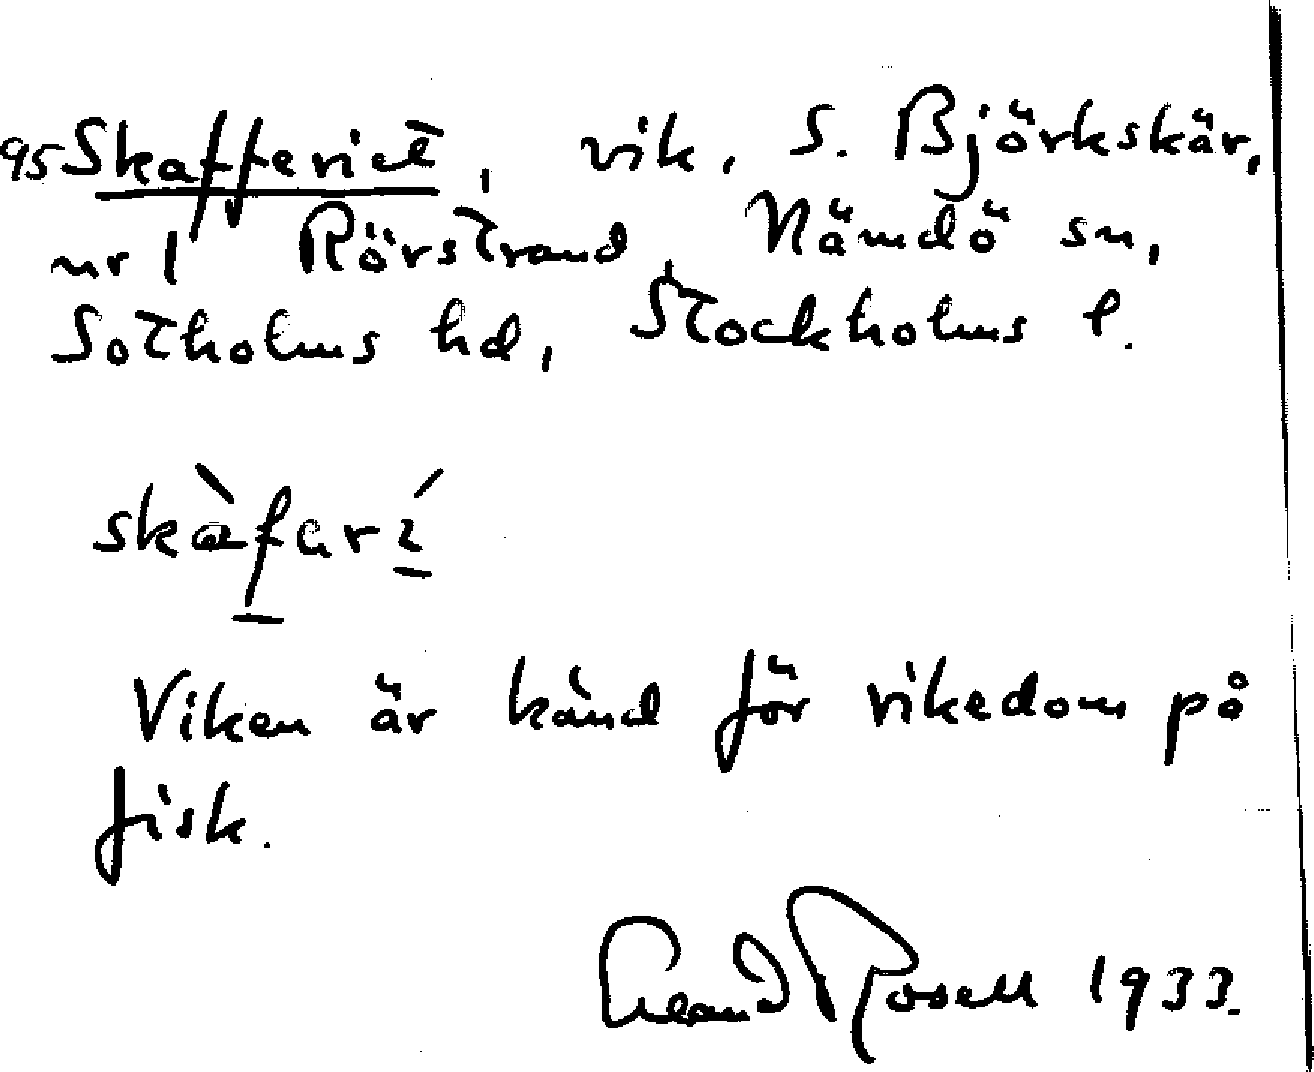 95 Skafferiet, vik, S. Björkskär,
nr 1 Rörstrand, Nämdö sn,
Sotholms hd, Stockholms l.
skàfarí
Viken är känd för rikedom på
fisk.
Erland Rosell 1933.